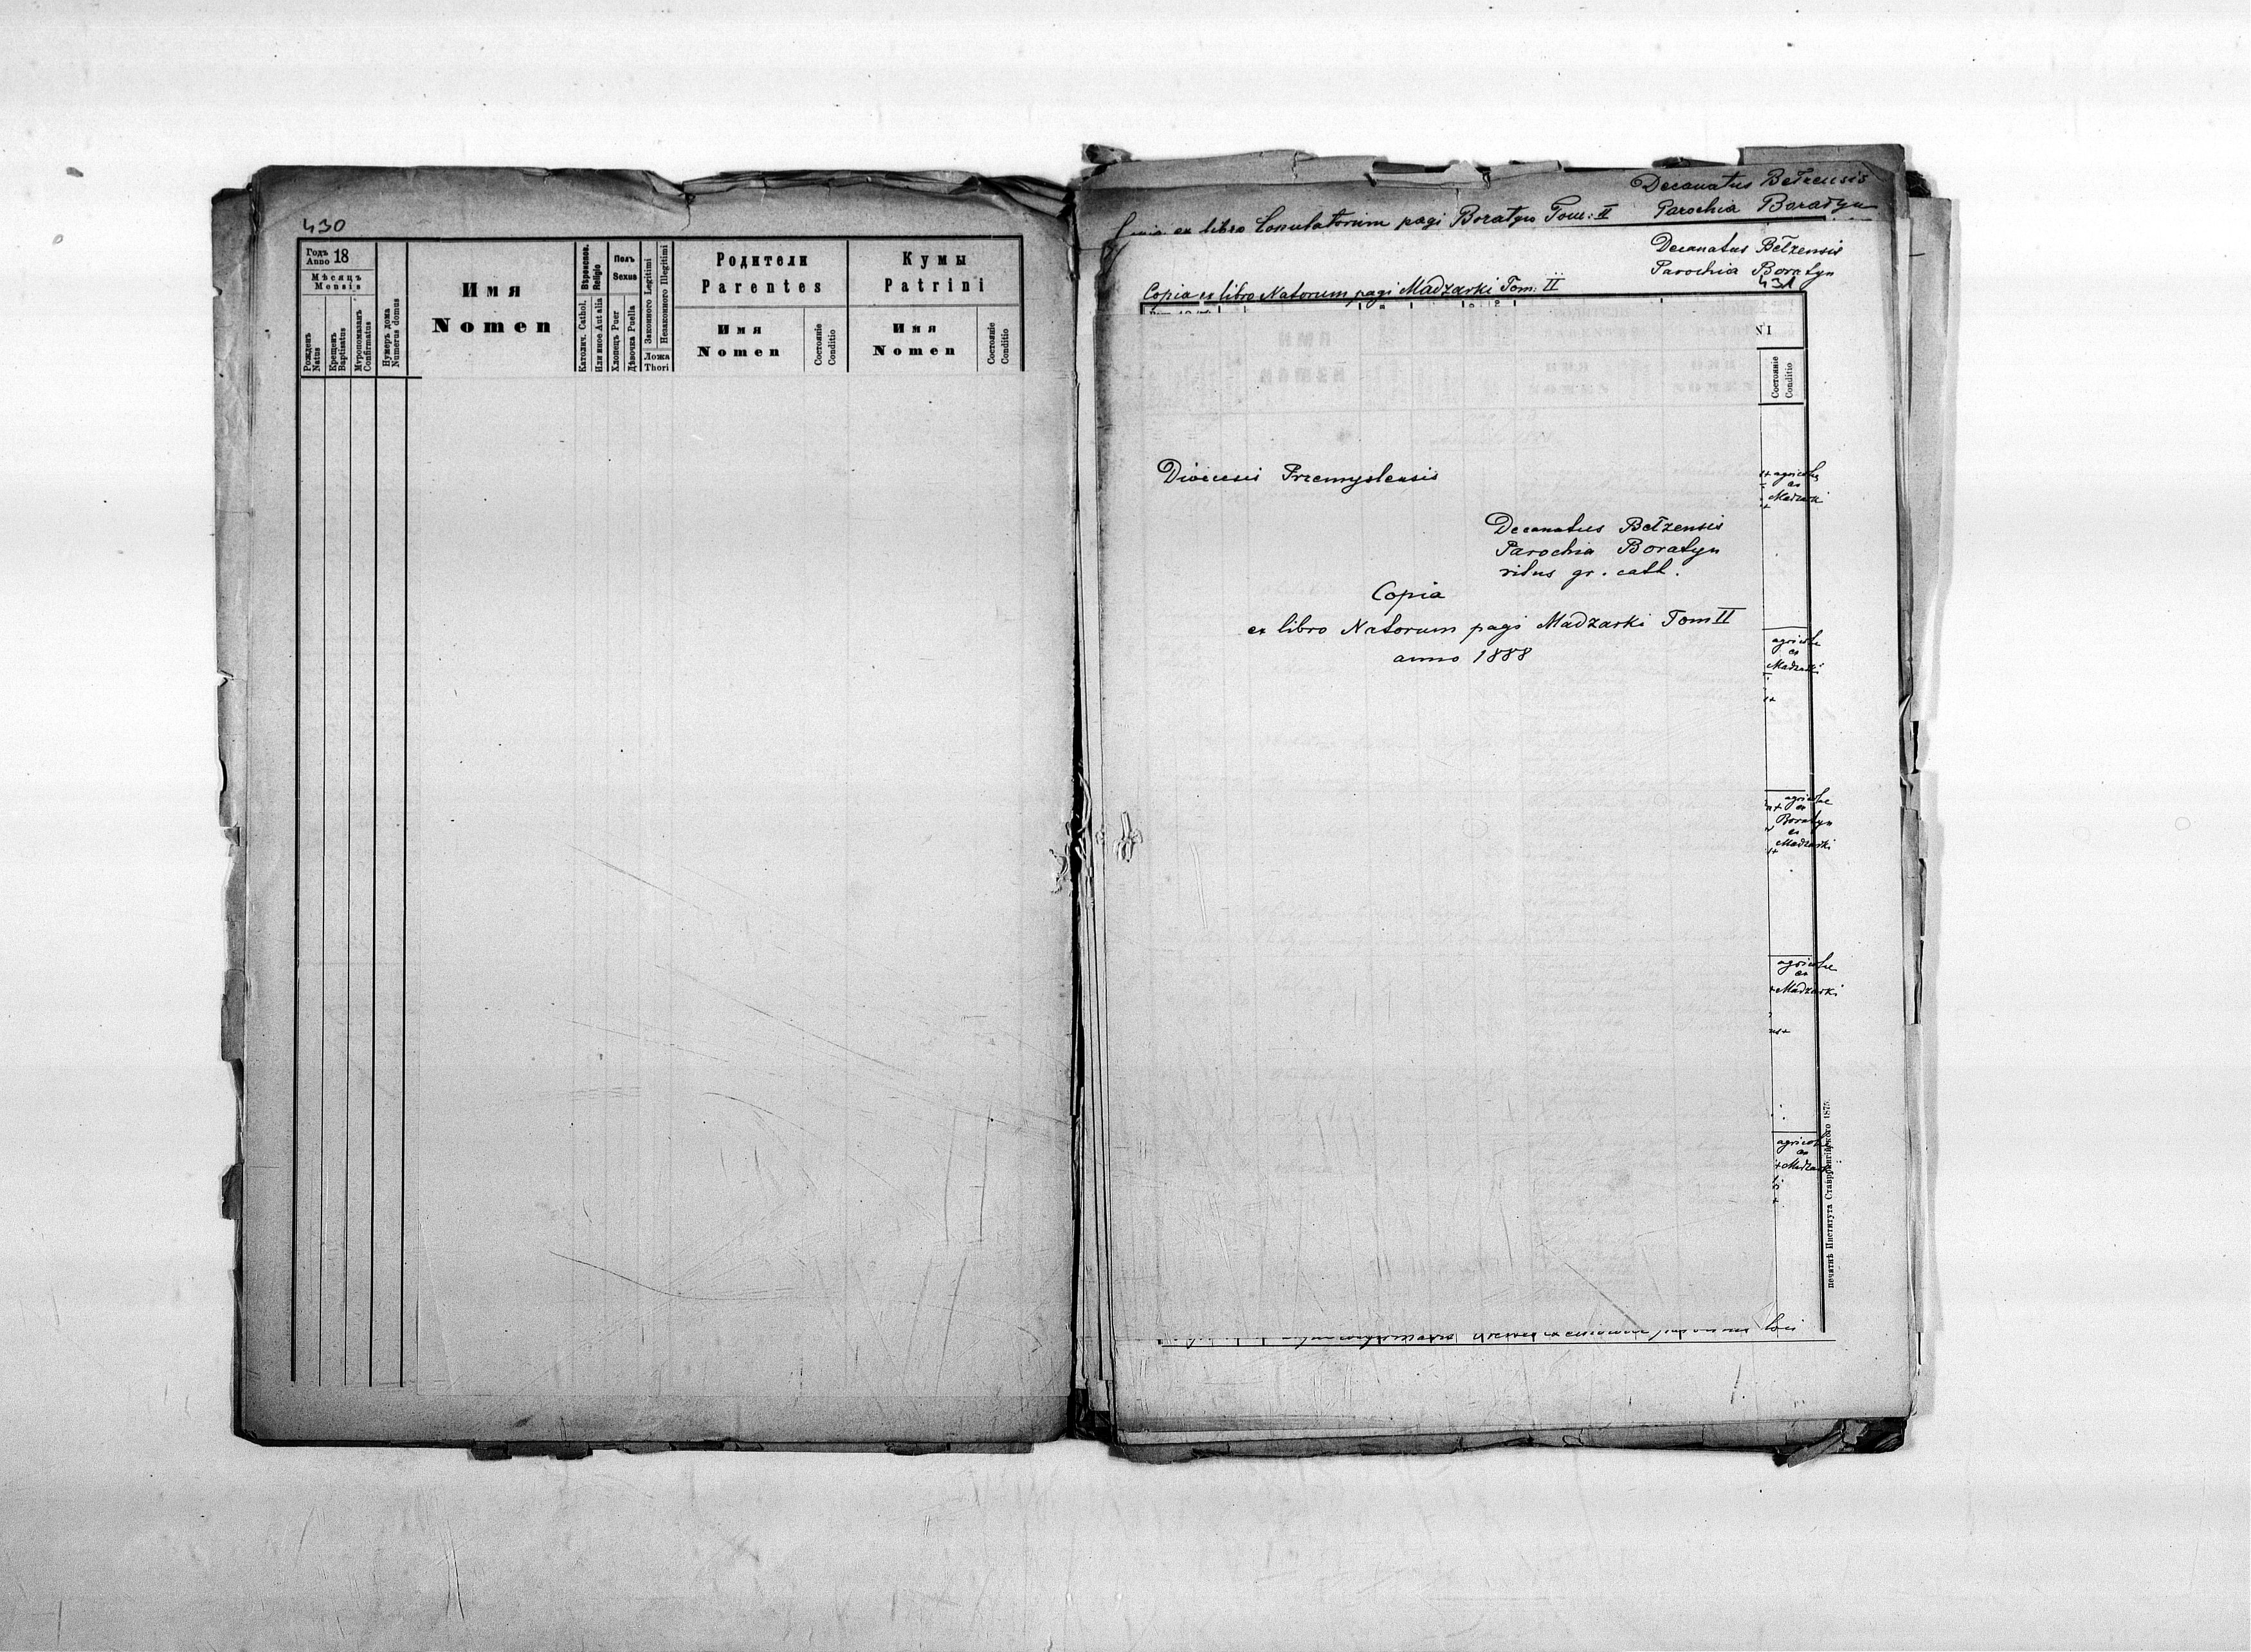 430
Годъ
Anno 18
Мѣсяцъ
Mensis
Рожденъ
Natus
Крещенъ
Baptisatus
Мѵропомазанъ
Confirmatus
Нумеръ дома
Numerus domus
Имя
Nomen
Вѣроиспов.
Religio
Католич. Cathol.
Или иное Aut alia
Полъ
Sexus
Хлопецъ Puer
Дѣвочка Puella
Законного Legitimi
Незаконного Illegitimi
Ложа
Thori
Родители
Parentes
Имя
Nomen
Состоянiе
Conditio
Кумы
Patrini
Имя
Nomen
Состоянiе
Conditio
Decanatus Bełzensis
ex libro Copulatorum pagi Boratyn Tom: II Parochia Boratyn
Decanatus Bełzensis
Parochia Boratyn
431
Copia ex libro Natorum pagi Madzarki Tom: II
NI
Состоянiе
Conditio
Dioecesis Przemyslensis
Decanatus Bełzensis
Parochia Boratyn
ritus gr. cath.
Copia
ex libro Natorum pagi Madzarki Tom II
anno 1888
agricolae
ex
Madzarki
agricolae
ex
Madzarki
agricolae
ex
Boratyn
ex
Madzarki
agricolae
ex
Madzarki
agricolae
ex
Madzarki
loci
печатнѣ Института Ставропигiйского 1875.